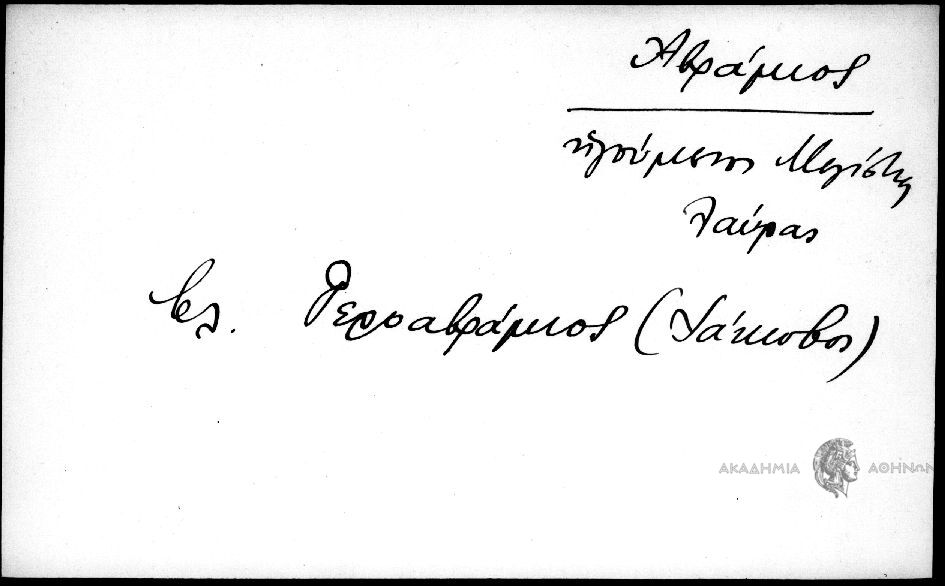 Ἀβράμιος
ἡγούμενος Μεγίστης
Λαύρας
βλ. Γεροαβράμιος (Ἰάκωβος)
ΑΚΑΔΗΜΙΑ ΑΘΗΝΩΝ